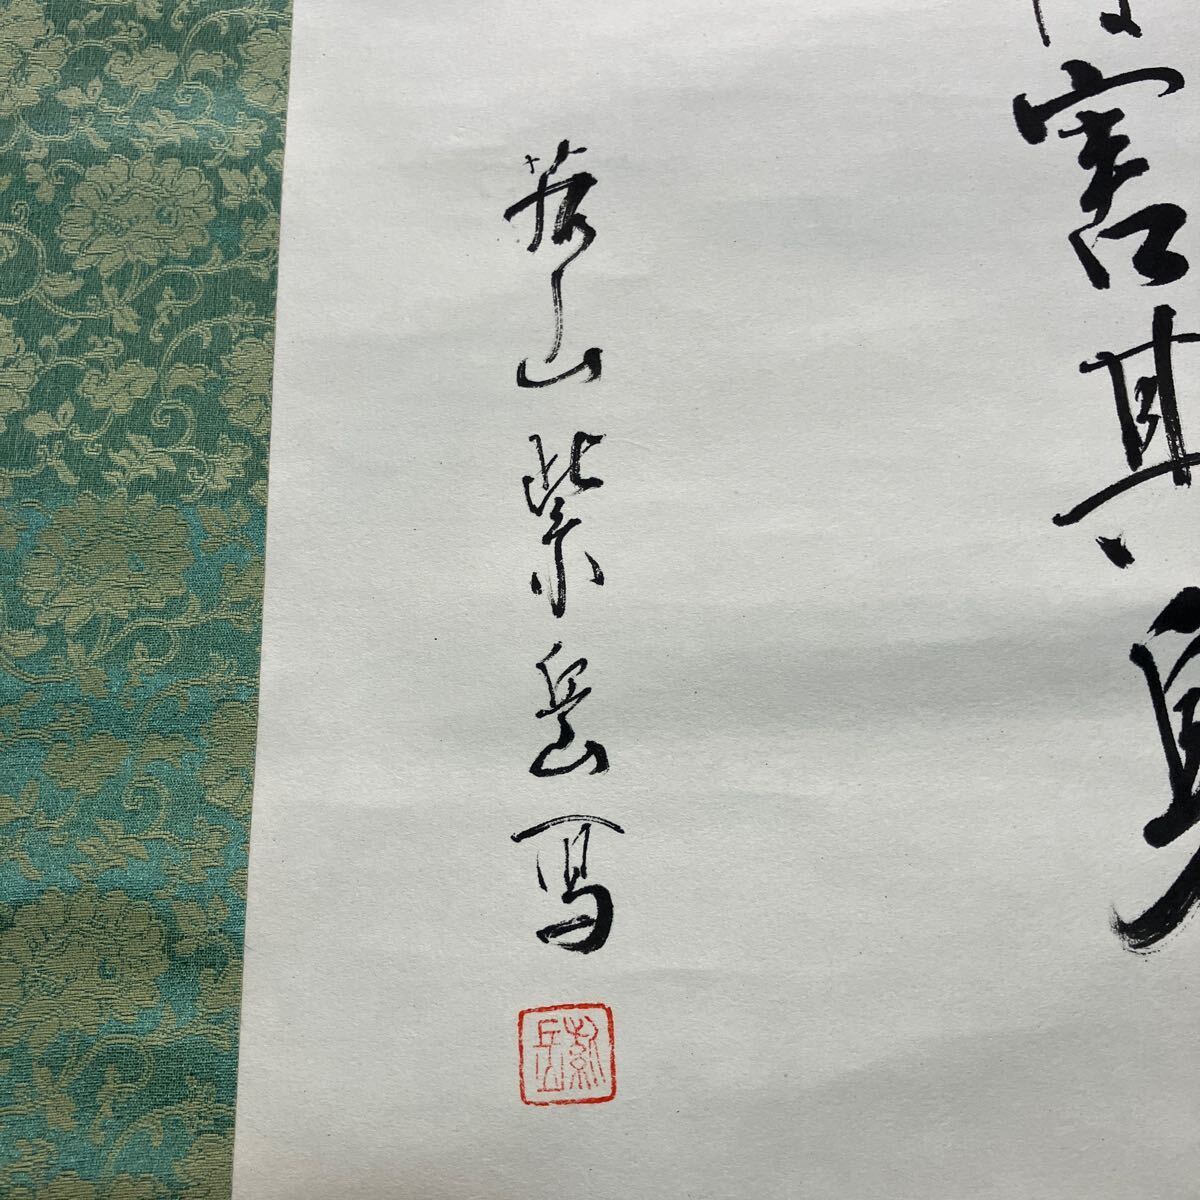 害其身
葆山紫岳写
紫岳